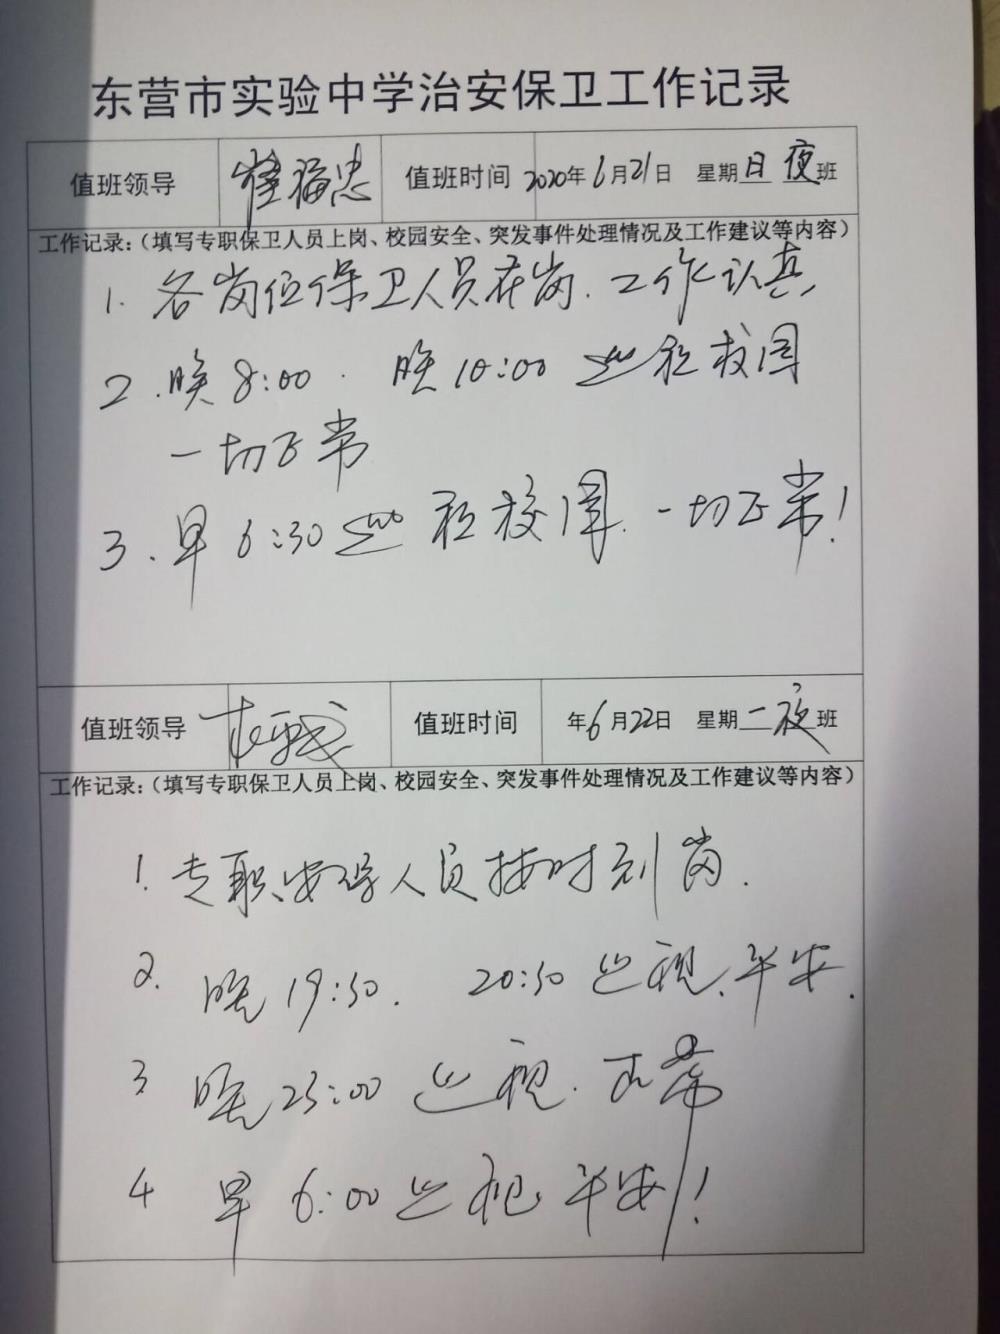 东营市实验中学治安保卫工作记录
值班领导 崔福忠 值班时间 2020年6月21日 星期日夜班
工作记录:(填写专职保卫人员上岗、校园安全、突发事件处理情况及工作建议等内容)
1. 各岗位保卫人员在岗.工作认真,
2.晚8:00. 晚10:00巡视校园
一切正常
3.早6:30巡视校园.一切正常!
值班领导 值班时间 年6月22日 星期一夜班
工作记录:(填写专职保卫人员上岗、校园安全、突发事件处理情况及工作建议等内容)
1.专职安保人员按时到岗.
2. 晚19:30. 20:30巡视、平安.
3 晚23:00巡视.正常
4 早6:00巡视,平安!